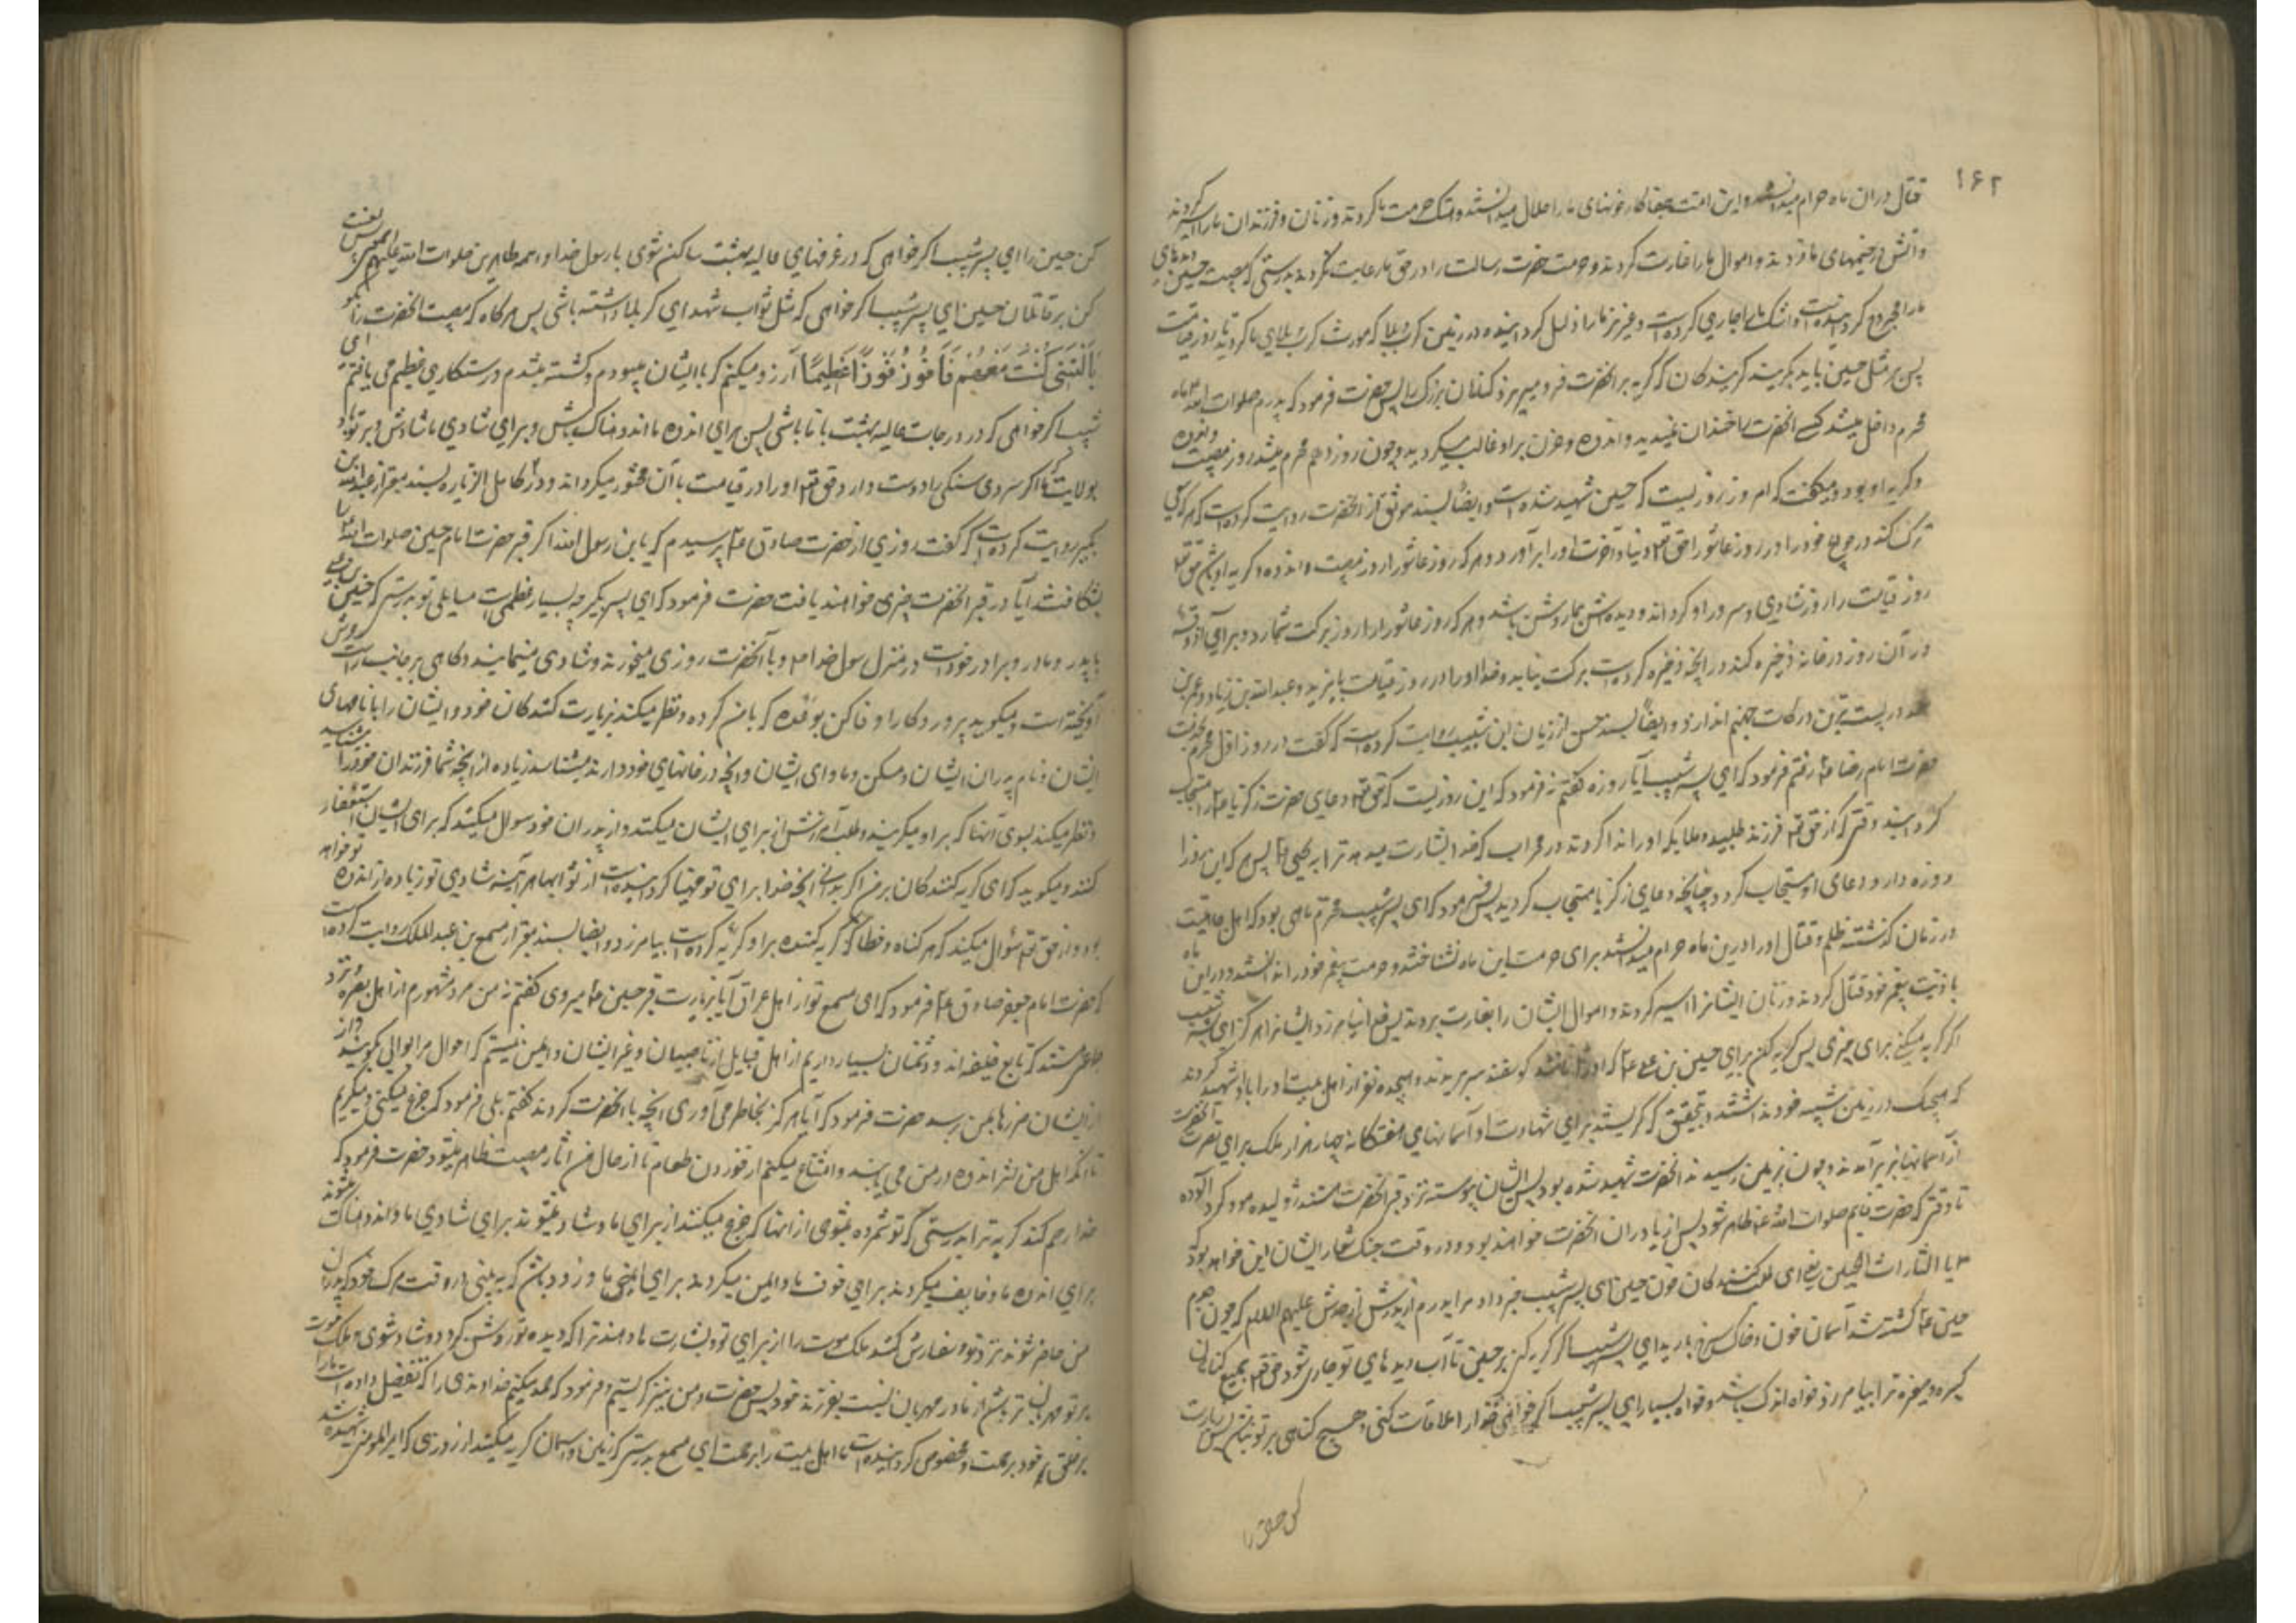 ۱۶۲
قتال در آن ماه حرام میدانستند و این امت جفاکار خونهای ما را حلال میدانستند و هتک حرمت ما کردند و زنان و فرزندان ما را اسیر کردند
و آتش در خیمهای ما زدند و اموال ما را غارت کردند و حرمت حضرت رسالت را در حق ما رعایت نکردند بدرستی که مصیبت حسین دیدهای
ما را مجروح گردانیده است و اشک ما را جاری کرده است و عزیز ما را ذلیل گردانیده در زمین کرب و بلا که مورث کرب و بلای ما گردید تا روز قیامت
پس بر مثل حسین باید بگریند گریه کنندگان که گریه بر آنحضرت فرو میریزد گناهان بزرگ را پس حضرت فرمود که پدرم صلوات الله علیه ماه
محرم داخل میشد کسی آنحضرت را خندان نمیدید و اندوه و حزن بر او غالب میگردید و چون روز دهم محرم میشد روز مصیبت و اندوه
و گریه او بود و میگفت که امروز روزیست که حسین شهید شده است و ایضا بسند موثق از آنحضرت روایت کرده است که هر که سعی
ترک کند در حوایج خود را در روز عاشورا حق تعالی دنیا و آخرت او را برآورد و هر که روز عاشورا روز مصیبت و اندوه و گریه او باشد حق تعالی
روز قیامت را روز شادی و سرور او گرداند و دیده اش بما روشن باشد و هر که روز عاشورا را روز برکت شمارد و برای آذوقه
در آن روز در خانه ذخیره کند در آنچه ذخیره کرده است برکت نیابد و خدا او را در روز قیامت با یزید و عبدالله بن زیاد و عمر بن
سعد در پست ترین درکات جهنم اندازد و ایضا بسند حسن از ریان ابن شبیب روایت کرده است که گفت در روز اول محرم بخدمت
حضرت امام رضا رفتم فرمود که ای پسر شبیب آیا روزه گفتم نه فرمود که این روزیست که حق تعالی دعای حضرت زکریا را مستجاب
گردانید وقتی که از حق تعالی فرزند طلبید و ملایکه او را ندا کردند در محراب که خدا بشارت میدهد ترا به یحیی پس هر که این روز را
روزه دارد دعای او مستجاب گردد چنانچه دعای زکریا مستجاب گردید پس فرمود که ای پسر شبیب محرم ماهی بود که اهل جاهلیت
در زمان گذشته ظلم و قتال را در این ماه حرام میدانستند برای حرمت این ماه نشناختند و حرمت پیغمبر خود را ندانستند و در این ماه
با ذریت پیغمبر خود قتال کردند و زنان ایشانرا اسیر کردند و اموال ایشان را بغارت بردند پس خدا نیامرزد ایشانرا هرگز ای پسر شبیب
اگر گریه میکنی برای چیزی پس گریه کن برای حسین بن علی که او را مانند گوسفند سر بریدند و هیجده نفر از اهل بیت او را با او شهید کردند
که هیچیک در زمین شبیه خود نداشتند و بتحقیق که گریستند برای شهادت او آسمانهای هفتگانه و چهار هزار ملک برای نصرت آنحضرت
از آسمانها بزیر آمدند و چون بزمین رسیدند آنحضرت شهید شده بود پس ایشان پیوسته نزد قبر آنحضرت هستند ژولیده مو و گرد آلوده
تا وقتی که حضرت قایم صلوات الله علیه ظاهر شود پس از یاوران آنحضرت خواهند بود و در وقت جنگ شعار ایشان این خواهد بود
یا لثارات الحسین یعنی ای طلب کنندگان خون حسین ای پسر شبیب خبر داد مرا پدرم از پدرش از جدش علیهم السلام که چون جدم
حسین کشته شد آسمان خون و خاک سرخ بارید ای پسر شبیب اگر گریه کنی بر حسین تا آب دیدهای تو جاری شود حق تعالی جمیع گناهان
کبیره و صغیره ترا بیامرزد خواه اندک باشد و خواه بسیار ای پسر شبیب اگر خواهی خدا را ملاقات کنی و هیچ گناهی بر تو نباشد پس زیارت
کن حسین را
کن حسین را ای پسر شبیب اگر خواهی که در غرفهای عالیه بهشت ساکن شوی با رسول خدا و ائمه طاهرین صلوات الله علیهم اجمعین پس لعنت
کن بر قاتلان حسین ای پسر شبیب اگر خواهی که مثل ثواب شهدای کربلا داشته باشی پس هرگاه که مصیبت آنحضرت را یاد کنی بگو
یَا لَیْتَنِی کُنْتُ مَعَهُمْ فَاَفُوزَ فَوْزًا عَظِیمًا آرزو میکنم که با ایشان میبودم و کشته میشدم و رستگاری عظیم می یافتم ای
شبیب اگر خواهی که در درجات عالیه بهشت با ما باشی پس برای اندوه ما اندوهناک باش و برای شادی ما شاد باش و بر تو باد
بولایت ما اگر مردی سنگی را دوست دارد حق تعالی او را در قیامت با آن محشور میگرداند و در کامل الزیاره بسند معتبر از عبدالله ابن
بکیر روایت کرده است که گفت روزی از حضرت صادق پرسیدم که یابن رسول الله اگر قبر حضرت امام حسین صلوات الله علیه را
بشکافند آیا در قبر آنحضرت چیزی خواهند یافت حضرت فرمود که ای پسر بکیر چه بسیار عظیم است مسایل تو بدرستی که حسین بن علی
با پدر و مادر و برادر خود است در منزل رسول خدا و با آنحضرت روزی میخورند و شادی مینمایند و گاهی بر جانب راست عرش
آویخته است و میگوید پروردگارا وفا کن بوعده که با من کرده و نظر میکند بزیارت کنندگان خود و ایشان را با نامهای
ایشان و نام پدران ایشان و مسکن و ماوای ایشان و آنچه در خانهای خود دارند میشناسد زیاده از آنچه شما فرزندان خود را میشناسید
و نظر میکند بسوی آنها که بر او میگریند و طلب آمرزش از برای ایشان میکند و از پدران خود سوال میکند که برای ایشان استغفار
کنند و میگوید که ای گریه کنندگان بر من اگر بدانی آنچه خدا برای تو مهیا گردانیده است از ثوابها هر آینه شادی تو زیاده از اندوه تو خواهد
بود و از حق تعالی سوال میکند که هر گناه و خطا که گریه کننده بر او کرده است بیامرزد و ایضا بسند معتبر از مسمع بن عبدالملک روایت کرده است
که حضرت امام جعفر صادق فرمود که ای مسمع تو از اهل عراقی آیا بزیارت قبر حسین میروی گفتم نه من مرد مشهورم از اهل بصره و نزد
ما جمعی هستند که تابع خلیفه اند و دشمنان بسیار داریم از اهل قبایل از ناصبیان و غیر ایشان و ایمن نیستم که احوال مرا بوالی بگویند و از
ایشان ضررها بمن رسد حضرت فرمود که آیا هرگز بخاطر می آوری آنچه با آنحضرت کردند گفتم بلی فرمود که جزع میکنی و میگریی
تا آنکه اهل من اثر اندوه در من می یابند و امتناع میکنم از خوردن طعام تا از حال من آثار مصیبت ظاهر میشود حضرت فرمود که
خدا رحم کند گریه ترا بدرستی که تو شمرده میشوی از آنها که جزع میکنند از برای ما و شاد میشوند برای شادی ما و اندوهناک میشوند
برای اندوه ما و خایف میگردند برای خوف ما و ایمن میگردند برای ایمنی ما و زود باشد که به بینی در وقت مرگ خود که پدران
من حاضر شوند نزد تو و سفارش کنند ملک موت را از برای تو و بشارت ها دهند ترا که دیده تو روشن گردد و شاد شوی و ملک موت
بر تو مهربان تر باشد از مادر مهربان نسبت بفرزند خود پس حضرت و من نیز گریستیم و فرمود که حمد میکنم خداوندی را که تفضیل داده است ما را
بر خلق خود برحمت و مخصوص گردانیده است ما اهل بیت را برحمت ای مسمع بدرستی که زمین و آسمان گریه میکنند از روزی که امیرالمومنین شهید شده